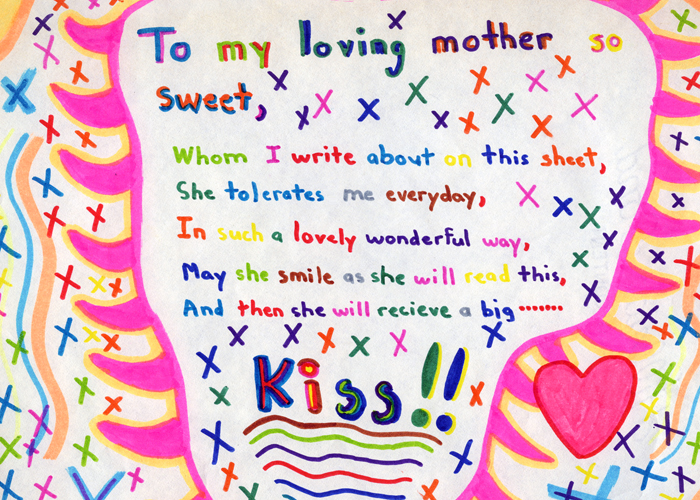 To my loving mother so
sweet,
Whom I write about on this sheet,
She tolerates me everyday,
In such a lovely wonderful way,
May she smile as she will read this,
And then she will recieve a big .......
Kiss!!